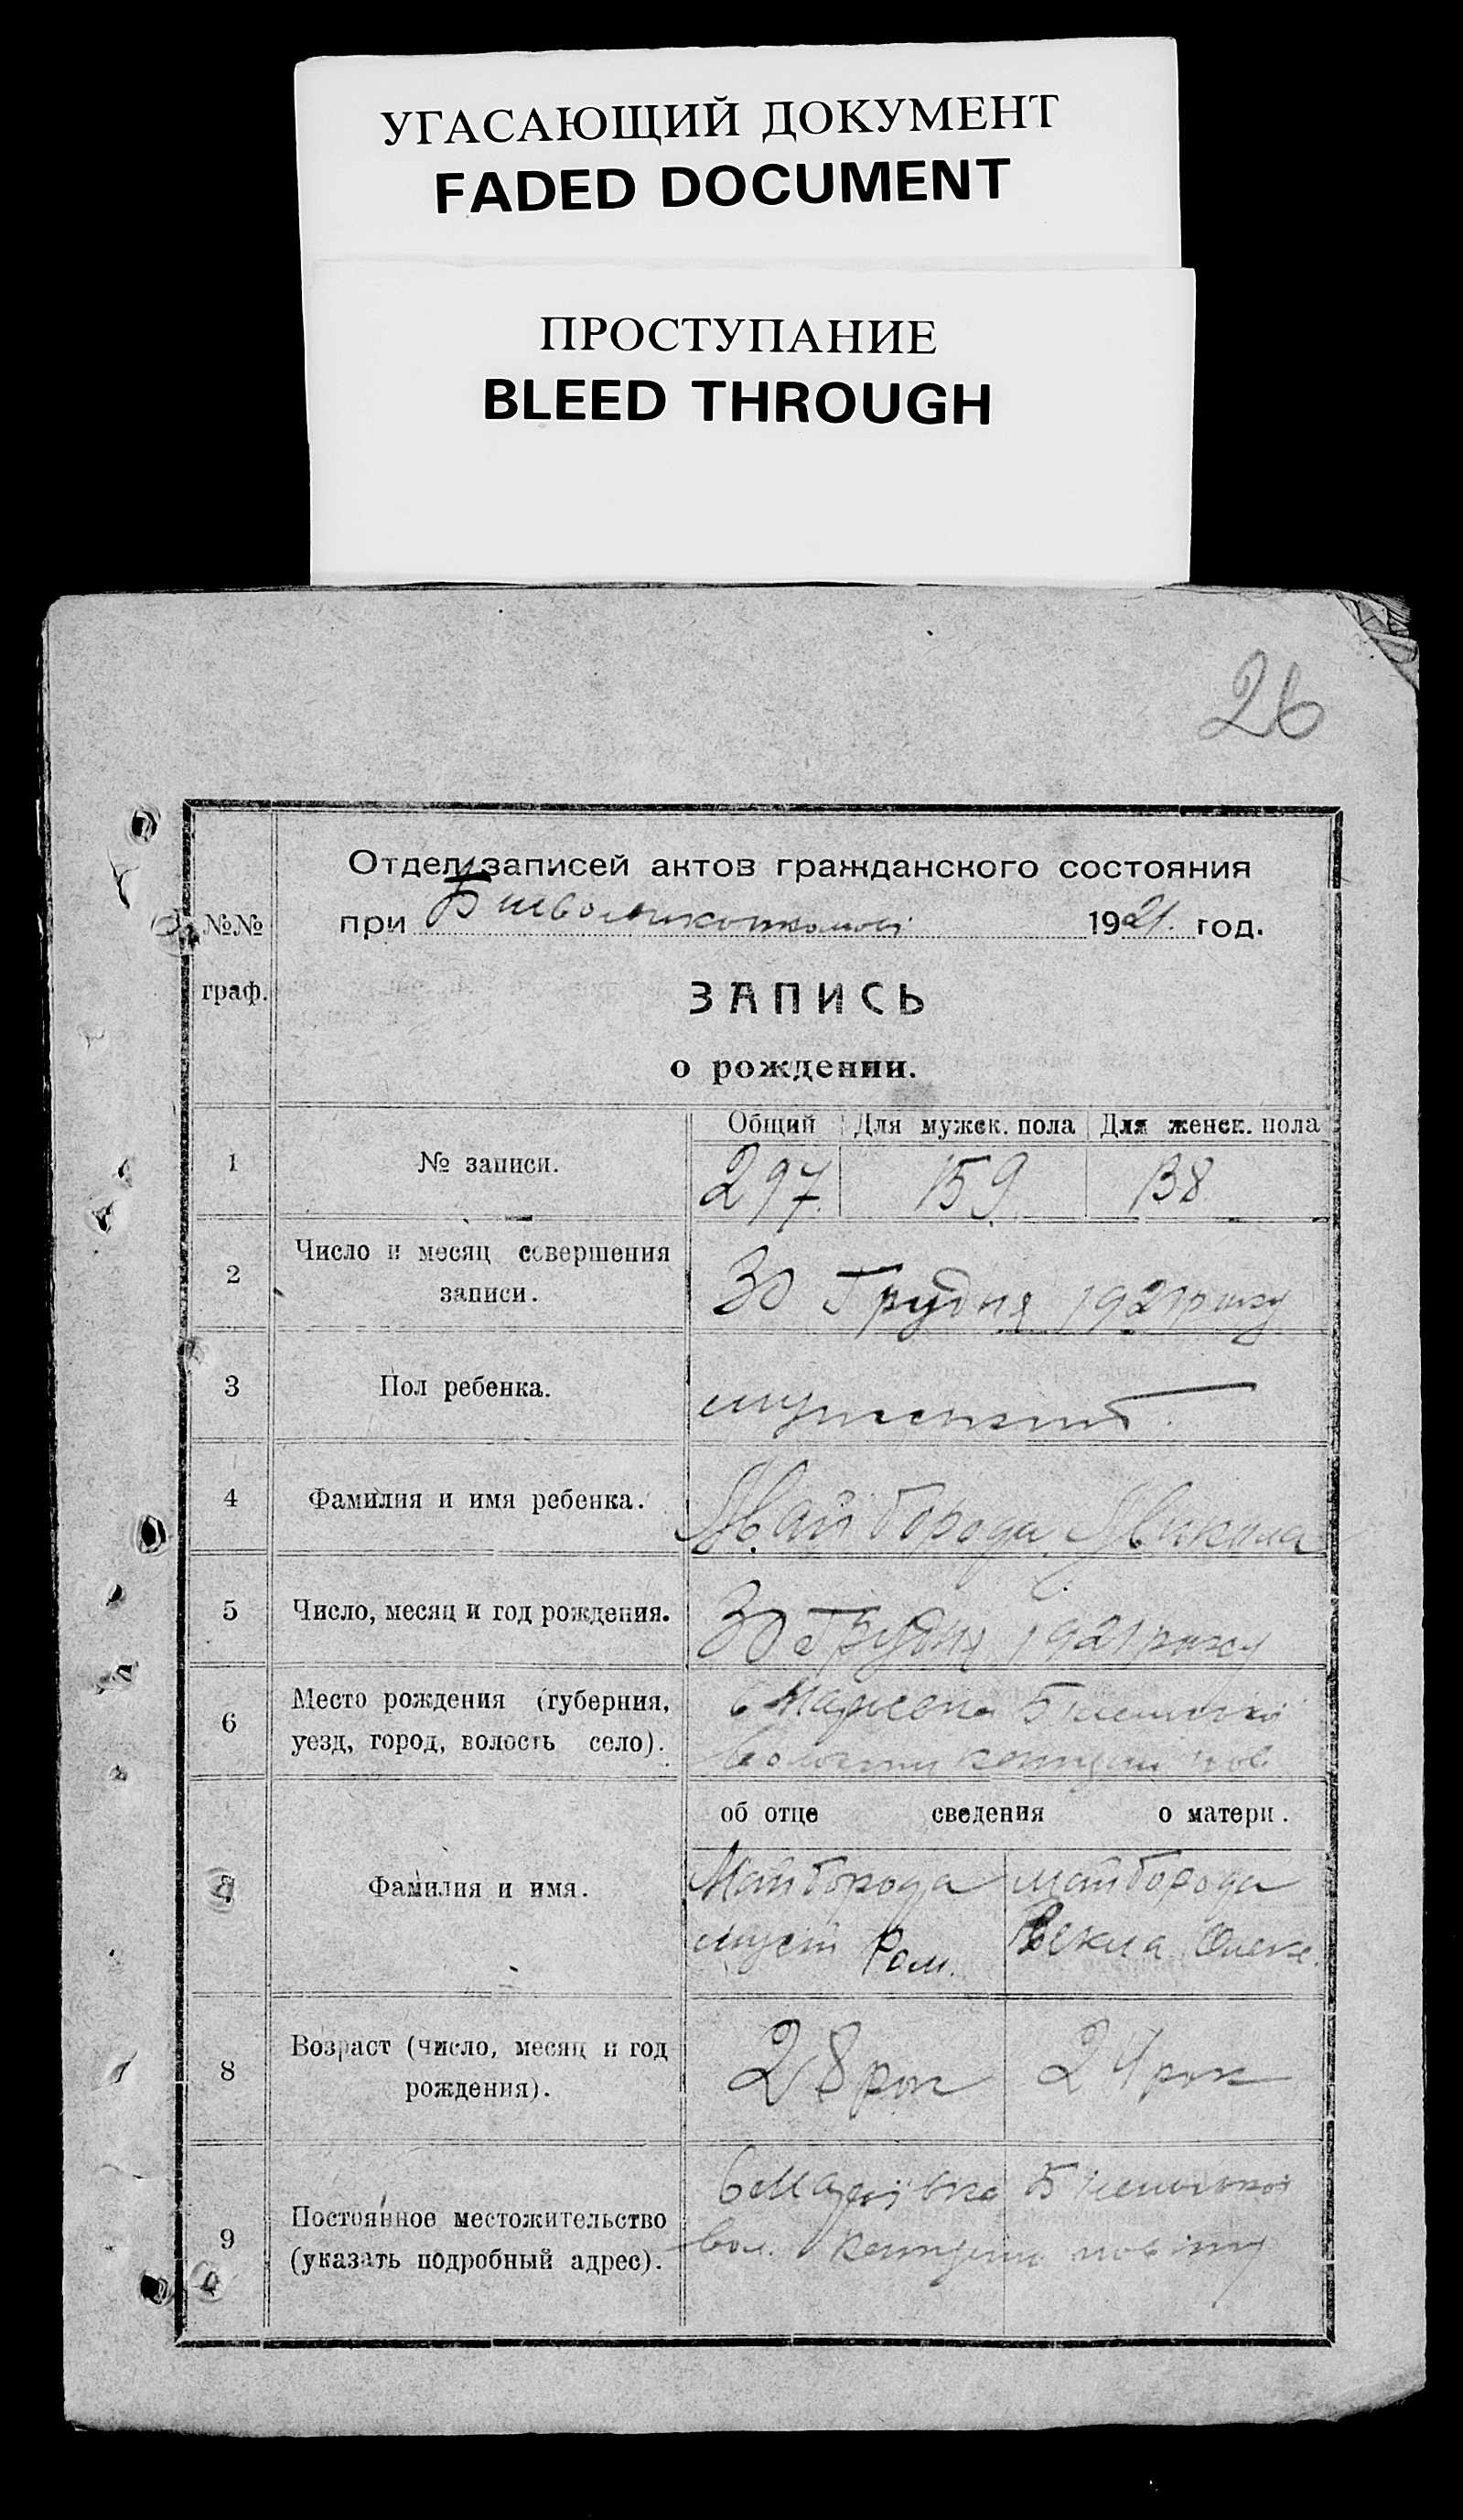 УГАСАЮЩИЙ ДОКУМЕНТ
FADED DOCUMENT
ПРОСТУПАНИЕ
BLEED THROUGH
26
Отдел записей актов гражданского состояния
№№ при 1921. год.
граф.
ЗАПИСЬ
о рождении.
Общий Для мужск. пола Для женск. пола
1 № записи. 297. 159 138
2 Число и месяц совершения
записи. 30 Грудня 1921 року
3 Пол ребенка.
4 Фамилия и имя ребенка. Майборода Микола
5 Число, месяц и год рождения. 30 Грудня 1921 року
6 Место рождения (губерния,
уезд, город, волость село).
об отце сведения о матери.
Майборода Майборода
Фамилия и имя.
Ром. Векла Олекс.
8 Возраст (число, месяц и год
рождения). 28 рок 24 рок
9 Постоянное местожительство
(указать подробный адрес). вол. повіту